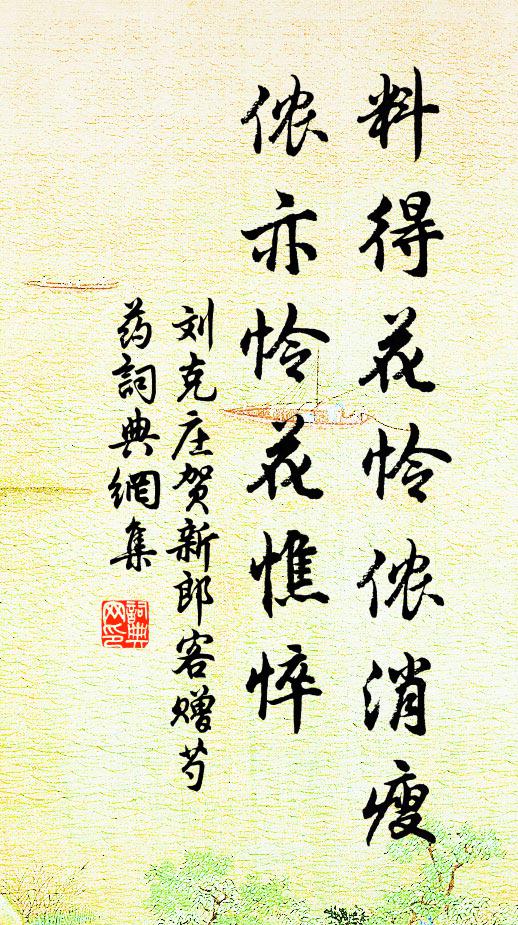 料得花怜侬消瘦
侬亦怜花憔悴
刘克庄贺新郎客赠芍
药词典網集
詞典网印